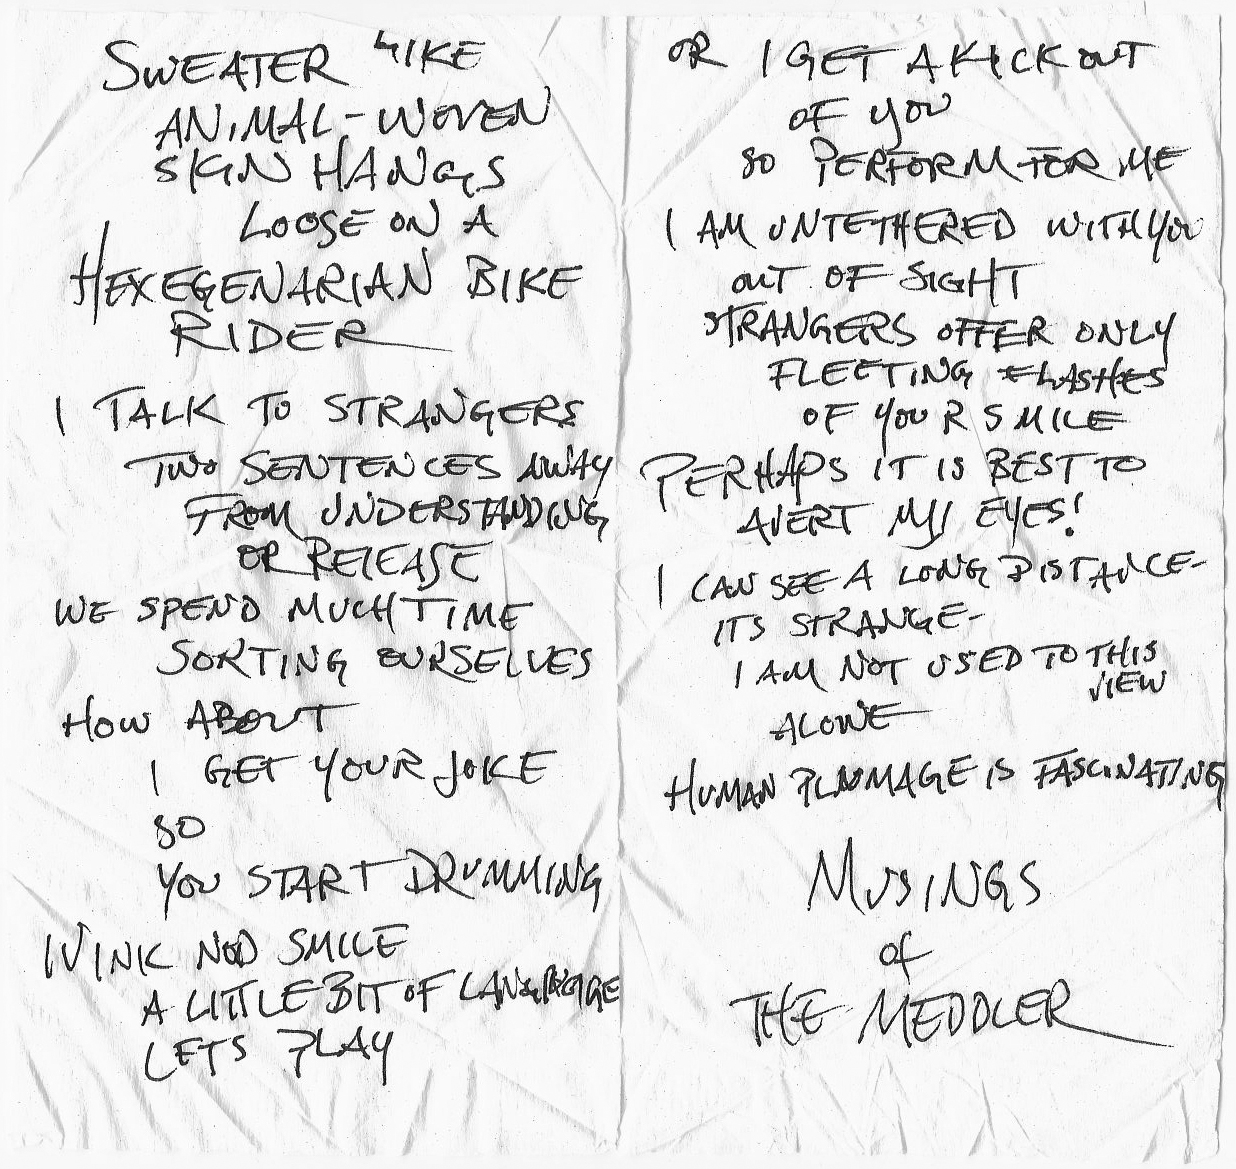 SWEATER LIKE
ANIMAL-WOVEN
SKIN HANGS
LOOSE ON A
HEXEGENARIAN BIKE
RIDER
I TALK TO STRANGERS
TWO SENTENCES AWAY
FROM UNDERSTANDING
OR RELEASE
WE SPEND MUCH TIME
SORTING OURSELVES
HOW ABOUT
I GET YOUR JOKE
SO
YOU START DRUMMING
WINK NOD SMILE
A LITTLE BIT OF LANGUAGE
LETS PLAY
OR I GET A KICK OUT
OF YOU
SO PERFORM FOR ME
I AM UNTETHERED WITH YOU
OUT OF SIGHT
STRANGERS OFFER ONLY
FLEETING FLASHES
OF YOUR SMILE
PERHAPS IT IS BEST TO
AVERT MY EYES!
I CAN SEE A LONG DISTANCE-
ITS STRANGE-
I AM NOT USED TO THIS
VIEW
ALONE
HUMAN PLUMAGE IS FASCINATING
MUSINGS
of
THE MEDDLER